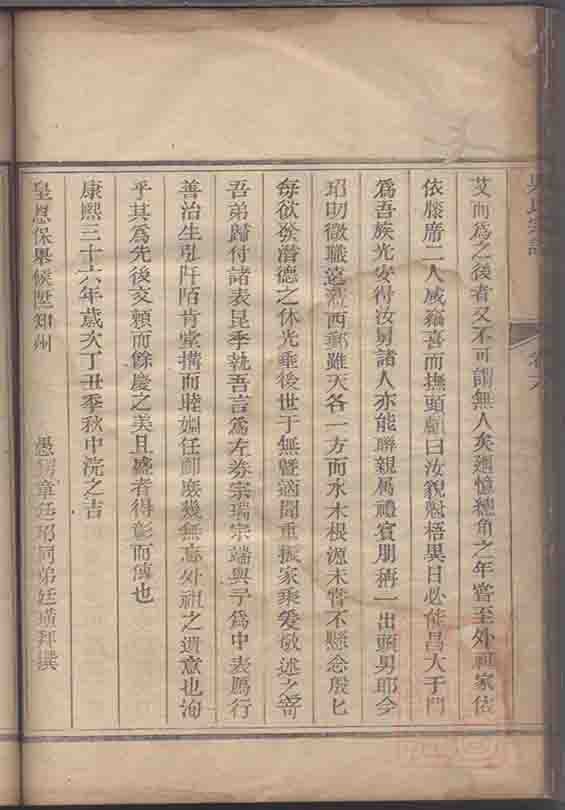 吳氏宗譜
卷六
艾而為之後者又不可謂無人矣迴憶總角之年嘗至外祖家依
依膝席二人咸竊喜而撫頭顱曰汝貌魁梧異日必能昌大于門
為吾族光安得汝舅諸人亦能聯親屬禮賓朋稱一出頭男耶今
玿叨微職遠蒞西鄉雖天各一方而水木根源未嘗不懸念殷匕
每欲發潛德之休光垂後世于無暨適聞重振家乘爰敬述之寄
吾弟歸付諸表昆季執吾言為左券宗瑞宗端與予為中表鴈行
善治生引阡陌肯堂搆而睦婣任卹庶幾無忘外祖之遺意也洵
乎其為先後交賴而餘慶之美且盛者得彰而傳也
康熙三十六年歲次丁丑季秋中浣之吉
皇恩保舉候陞知州 愚甥章廷玿同弟廷璜拜撰